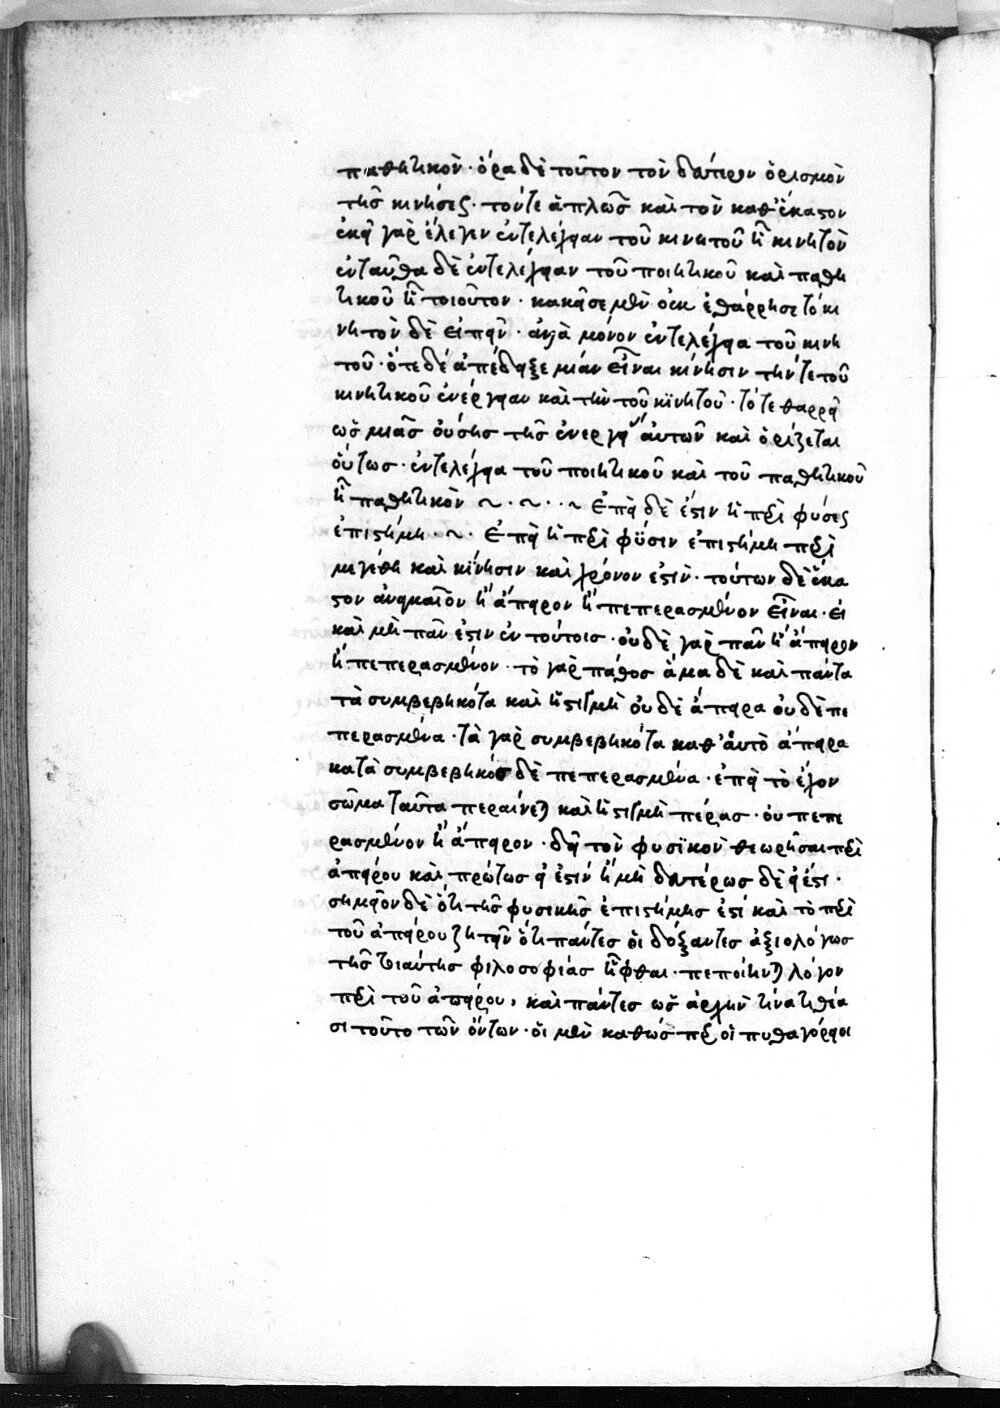 παθητικὸν · ὅρα δὲ τοῦτον τὸν δεύτερον ὁρισμὸν
τῆς κινήσεως · τόν τε ἁπλῶς καὶ τὸν καθ' ἕκαστον
ἐκεῖ γὰρ ἔλεγεν ἐντελέχειαν τοῦ κινητοῦ ἧ κινητὸν
ἐνταῦθα δὲ ἐντελέχειαν τοῦ ποιητικοῦ καὶ παθη
τικοῦ ἧ τοιοῦτον · κακεῖσε μὲν οὐκ ἐθάρρησε τὸ κι
νητὸν δὲ εἰπεῖν · ἀλλὰ μόνον ἐντελέχεια τοῦ κινη
τοῦ · ὅτε δὲ ἀπέδειξε μίαν εἶναι κίνησιν τήν τε τοῦ
κινητικοῦ ἐνέργειαν καὶ τὴν τοῦ κινητοῦ · τότε θαρρεῖ
ὡς μιᾶς οὔσης τῆς ἐνεργείας αὐτῶν καὶ ὁρίζεται
οὕτως · ἐντελέχεια τοῦ ποιητικοῦ καὶ τοῦ παθητικοῦ
ἧ παθητικὸν ~ · ~ · · ~ Ἐπεὶ δὲ ἐστιν ἡ περὶ φύσεως
ἐπιστήμη · ~ · Ἐπεὶ ἡ περὶ φύσιν ἐπιστήμη περὶ
μεγέθη καὶ κίνησιν καὶ χρόνον ἐστὶν · τούτων δὲ ἕκα
στον ἀναγκαῖον ἢ ἄπειρον ἢ πεπερασμένον εἶναι · εἰ
καὶ μὴ πᾶν ἐστιν ἐν τούτοις · οὐδὲ γὰρ πᾶν ἢ ἄπειρον
ἢ πεπερασμένον · τὸ γὰρ πάθος ἅμα δὲ καὶ πάντα
τὰ συμβεβηκότα καὶ ἡ στιγμὴ οὐδὲ ἄπειρα οὐδὲ πε
περασμένα · τὰ γὰρ συμβεβηκότα καθ' αὑτὸ ἄπειρα
κατὰ συμβεβηκὸς δὲ πεπερασμένα · ἐπεὶ τὸ ἔχον
σῶμα ταῦτα περαίνεται καὶ ἡ στιγμὴ πέρας · οὐ πεπε
ρασμένον ἢ ἄπειρον · δεῖ τὸν φυσϊκὸν θεωρῆσαι περὶ
ἀπείρου καὶ πρώτως εἰ ἐστὶν ἢ μὴ δευτέρως δὲ εἰ ἔστι ·
σημεῖον δὲ ὅτι τῆς φυσικῆς ἐπιστήμης ἐστί καὶ τὸ περὶ
τοῦ ἀπείρου ζητεῖν ὅτι πάντες οἱ δόξαντες ἀξιολόγως
τῆς τοιαύτης φιλοσοφίας ἧφθαι · πεποίηνται λόγον
περὶ τοῦ ἀπείρου, καὶ πάντες ὡς ἀρχὴν τίνα τιθέα
σι τοῦτο τῶν ὄντων · οἱ μὲν καθὼς περ οἱ πυθαγόρειοι